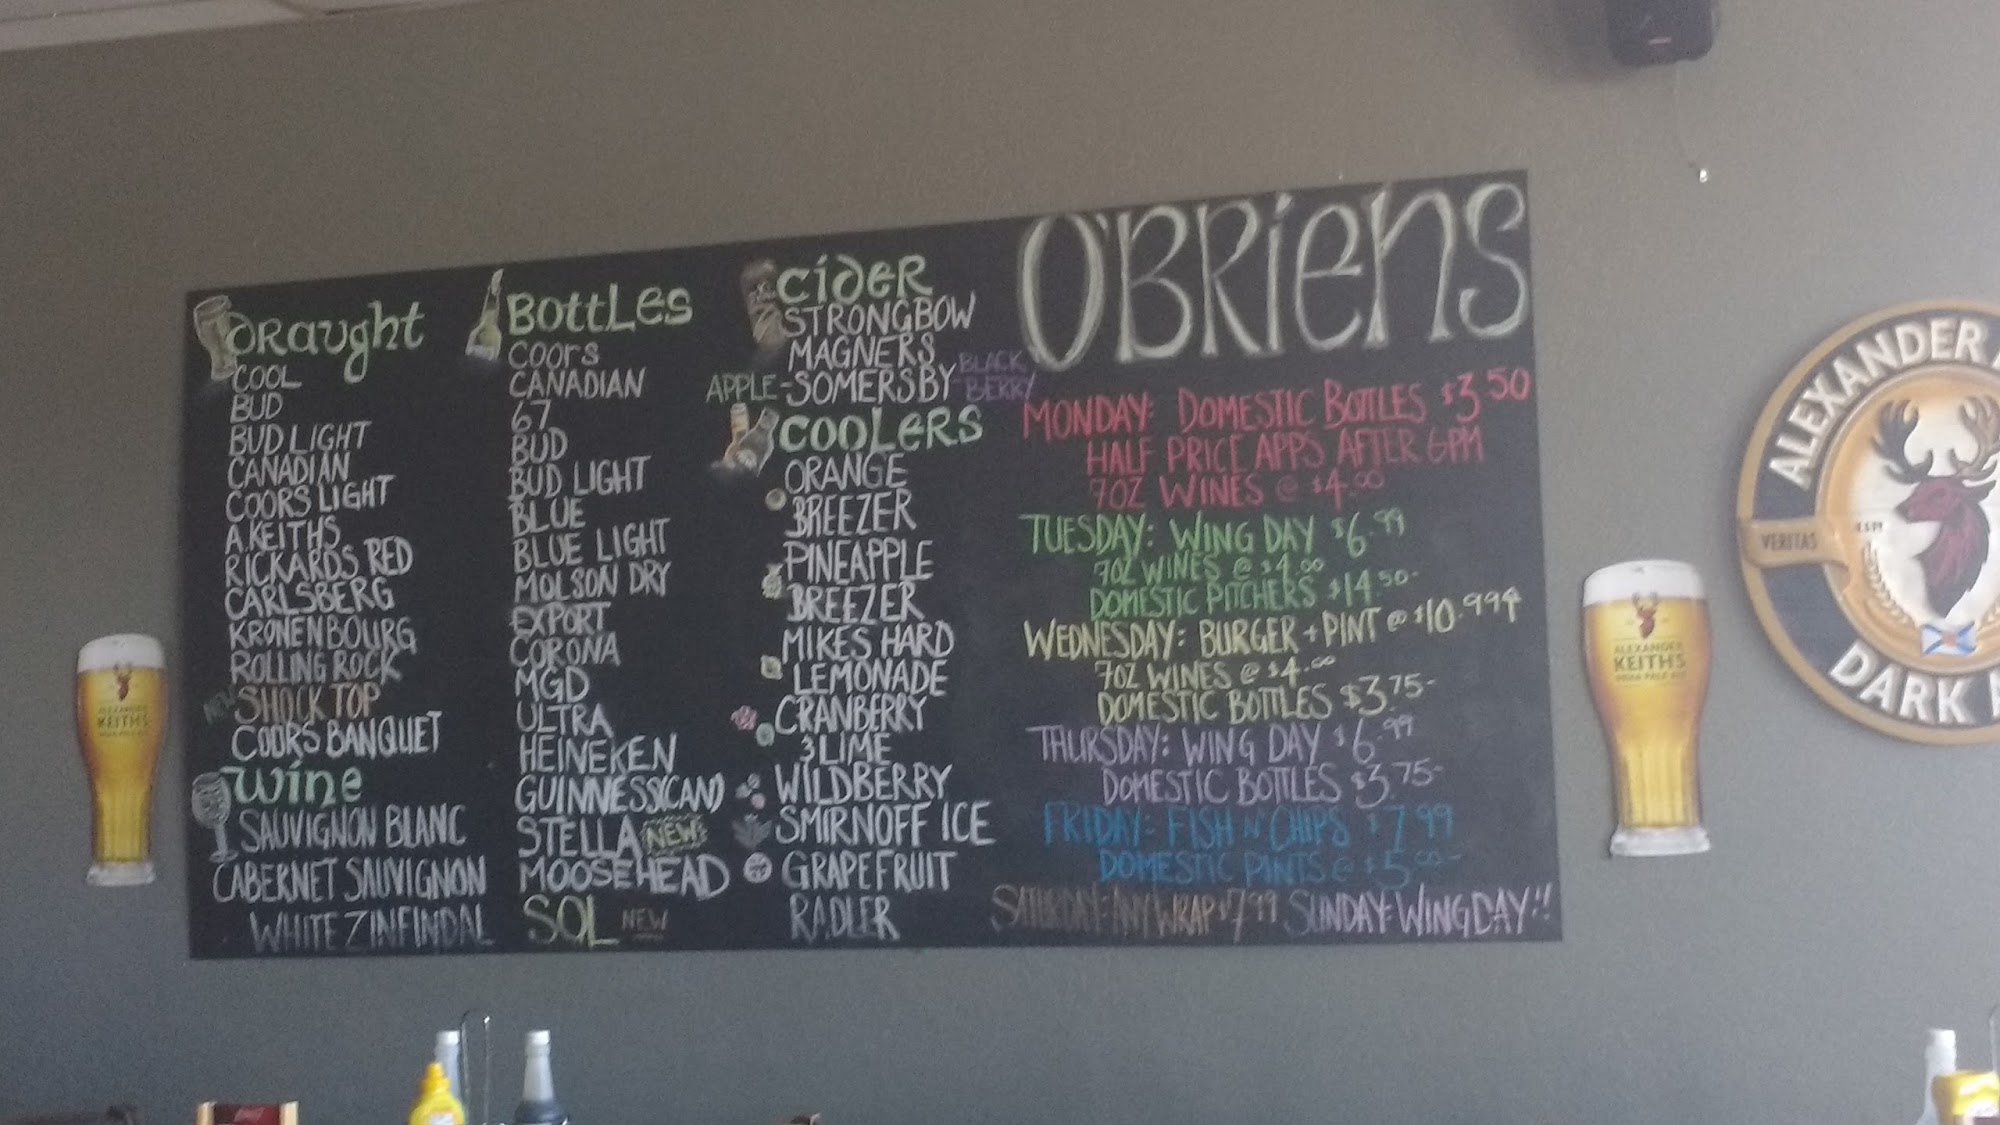 O'BRiens
DRaught
COOL
BUD
BUD LIGHT
CANADIAN
COORS LIGHT
A.KEITHS
RICKARDS RED
CARLSBERG
KRONENBOURG
ROLLING ROCK
NEW SHOCK TOP
COORS BANQUET
Wine
SAUVIGNON BLANC
CABERNET SAUVIGNON
WHITE ZINFINDAL
BOttLes
COORS
CANADIAN
67
BUD
BUD LIGHT
BLUE
BLUE LIGHT
MOLSON DRY
EXPORT
CORONA
MGD
ULTRA
HEINEKEN
GUINNESS(CAN)
STELLA NEW
MOOSEHEAD
SOL NEW
CideR
STRONGBOW
MAGNERS
APPLE-SOMERSBY-BLACK BERRY
COOLeRS
ORANGE
BREEZER
PINEAPPLE
BREEZER
MIKES HARD
LEMONADE
CRANBERRY
& LIME
WILDBERRY
SMIRNOFF ICE
GRAPEFRUIT
RADLER
MONDAY: DOMESTIC BOTTLES $3.50
HALF PRICE APPS AFTER 6PM
7OZ WINES @ $4.00
TUESDAY: WING DAY $6.99
7OZ WINES @ $4.00
DOMESTIC PITCHERS $14.50-
WEDNESDAY: BURGER + PINT @ $10.99
7OZ WINES @ $4.00
DOMESTIC BOTTLES $3.75-
THURSDAY: WING DAY $6.99
DOMESTIC BOTTLES $3.75-
FRIDAY: FISH N' CHIPS $7.99
DOMESTIC PINTS @ $5.00-
SATURDAY: ANY WRAP $7.99 SUNDAY: WING DAY!!
ALEXANDER
KEITH'S
INDIA PALE ALE
ALEXANDER
KEITH'S
INDIA PALE ALE
ALEXANDER
VERITAS
DARK